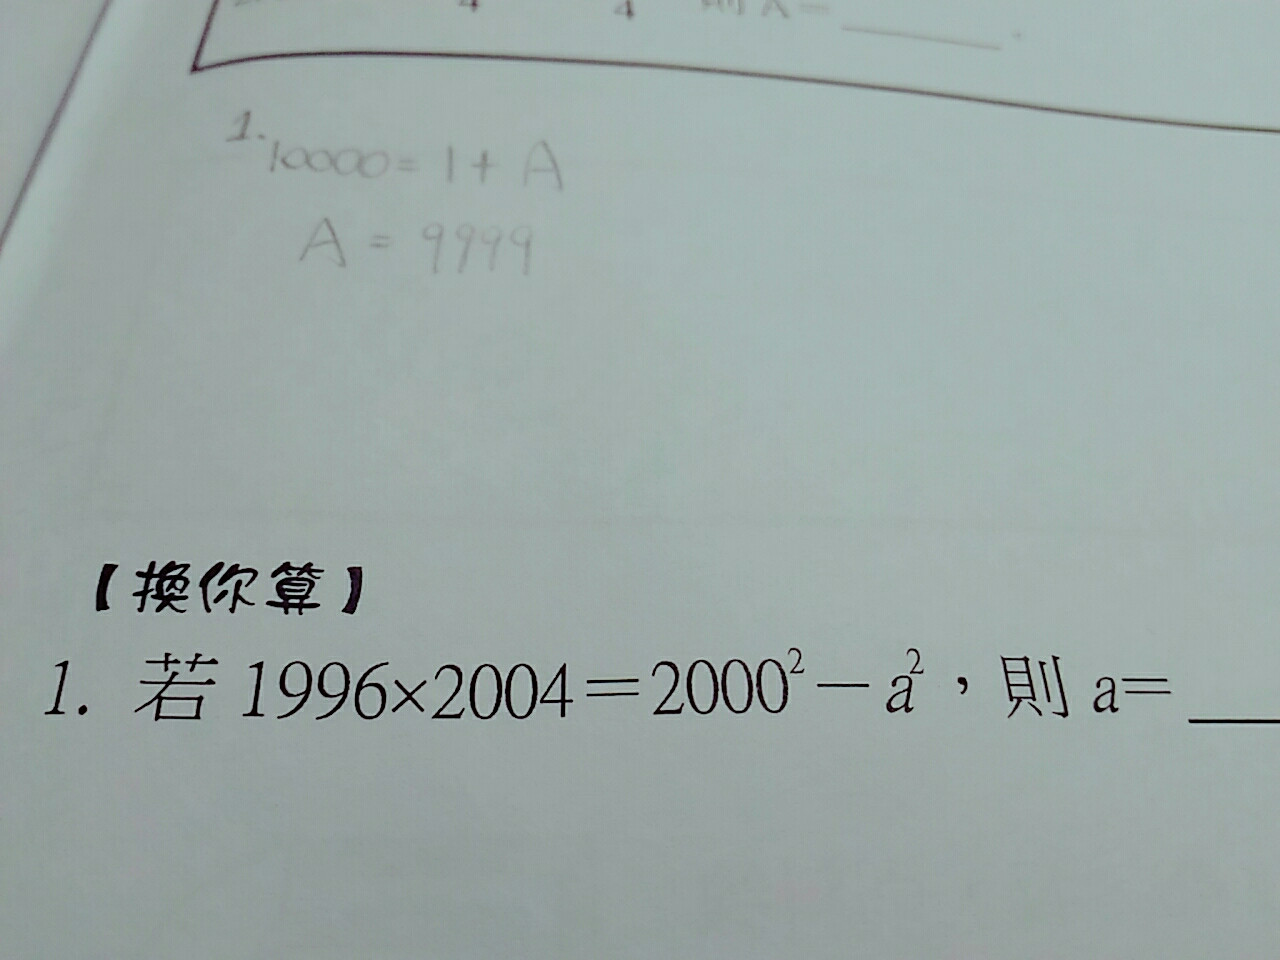 4 4 則 A=
1.
10000 = 1 + A
A = 9999
【換你算】
1. 若 1996×2004=2000²－a²，則 a=